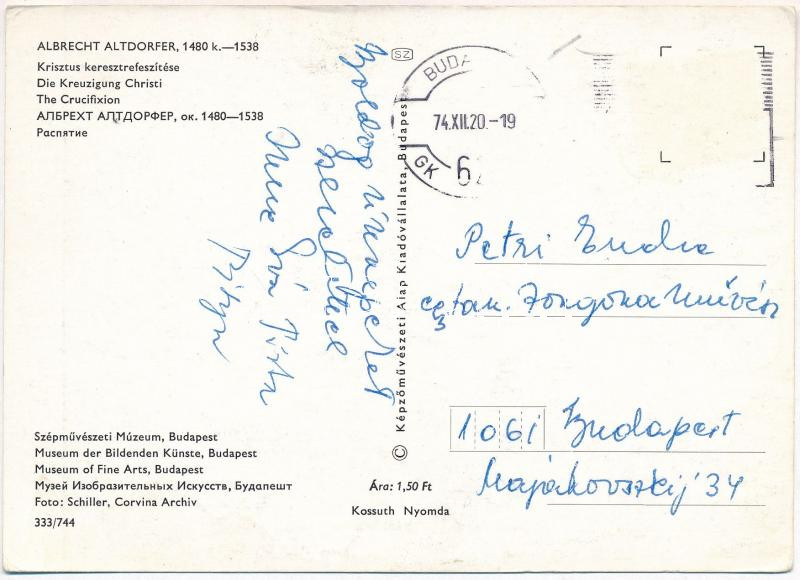 ALBRECHT ALTDORFER, 1480 k.—1538
Krisztus keresztrefeszítése
Die Kreuzigung Christi
The Crucifixion
АЛБРЕХТ АЛТДОРФЕР, ок. 1480—1538
Распятие
Boldog ünnepeket
szeretettel
Éva
Szépművészeti Múzeum, Budapest
Museum der Bildenden Künste, Budapest
Museum of Fine Arts, Budapest
Музей Изобразительных Искусств, Будапешт
Foto: Schiller, Corvina Archiv
333/744
Ára: 1,50 Ft
Kossuth Nyomda
© Képzőművészeti Alap Kiadóvállalata, Budapest
SZ
BUDA
74.XII.20.-19
GK 62
Petri Endre
zongoraművész
1061 Budapest
Majakovszkij 34